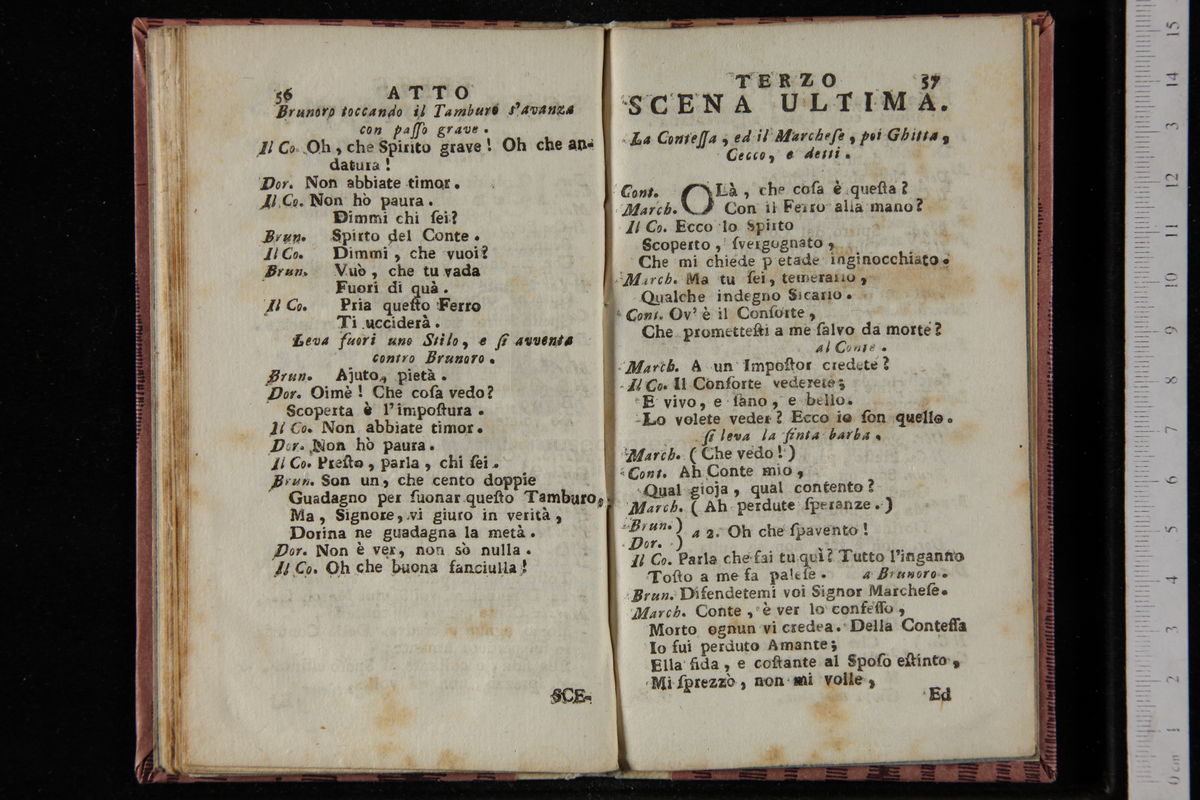 56 ATTO
Brunoro toccando il Tamburo s'avanza
con paſſo grave.
Il Co. Oh, che Spirito grave! Oh che an-
datura!
Dor. Non abbiate timor.
Il Co. Non hò paura.
Dimmi chi ſei?
Brun. Spirto del Conte.
Il Co. Dimmi, che vuoi?
Brun. Vuò, che tu vada
Fuori di quà.
Il Co. Pria queſto Ferro
Ti ucciderà.
Leva fuori uno Stilo, e ſi avventa
contro Brunoro.
Brun. Ajuto, pietà.
Dor. Oimè! Che coſa vedo?
Scoperta è l'impoſtura.
Il Co. Non abbiate timor.
Dor. Non hò paura.
Il Co. Preſto, parla, chi ſei.
Brun. Son un, che cento doppie
Guadagno per ſuonar queſto Tamburo,
Ma, Signore, vi giuro in verità,
Dorina ne guadagna la metà.
Dor. Non è ver, non sò nulla.
Il Co. Oh che buona fanciulla!
SCE-
TERZO 57
SCENA ULTIMA.
La Conteſſa, ed il Marcheſe, poi Ghitta,
Cecco, e detti.
Cont. OLà, che coſa è queſta?
March. Con il Ferro alla mano?
Il Co. Ecco lo Spirto
Scoperto, ſvergognato,
Che mi chiede p etade inginocchiato.
March. Ma tu ſei, temerario,
Qualche indegno Sicario.
Cont. Ov' è il Conſorte,
Che prometteſti a me ſalvo da morte?
al Conte.
March. A un Impoſtor credete?
Il Co. Il Conſorte vederete;
E vivo, e ſano, e bello.
Lo volete veder? Ecco io ſon quello.
ſi leva la finta barba.
March. (Che vedo!)
Cont. Ah Conte mio,
Qual gioja, qual contento?
March. (Ah perdute ſperanze.)
Brun.)
Dor. ) a 2. Oh che ſpavento!
Il Co. Parla che fai tu quì? Tutto l'inganno
Toſto a me fa paleſe. a Brunoro.
Brun. Difendetemi voi Signor Marcheſe.
March. Conte, è ver lo confeſſo,
Morto ognun vi credea. Della Conteſſa
Io fui perduto Amante;
Ella fida, e coſtante al Spoſo eſtinto,
Mi ſprezzò, non mi volle,
Ed